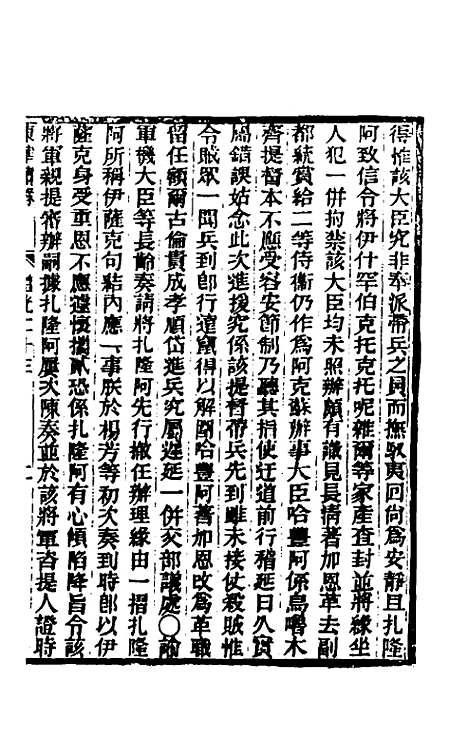 得惟該大臣究非奉派帶兵之員而撫馭夷回尙爲安靜且扎隆
阿致信令將伊什罕伯克托克托呢雜爾等家產查封並將緣坐
人犯一併拘禁該大臣均未照辦頗有識見長清著加恩革去副
都統賞給二等侍衞仍作爲阿克蘇辦事大臣哈豐阿係烏嚕木
齊提督本不應受容安節制乃聽其指使迂道前行稽延日久實
屬錯誤姑念此次進援究係該提督帶兵先到雖未接仗殺賊惟
令賊眾一聞兵到卽行遠竄得以解圍哈豐阿著加恩改爲革職
留任額爾古倫貫成孝順岱進兵究屬遲延一併交部議處○諭
軍機大臣等長齡奏請將扎隆阿先行撤任辦理緣由一摺扎隆
阿所稱伊薩克句結內應一事朕於楊芳等初次奏到時卽以伊
薩克身受重恩不應遽懷攜貳恐係扎隆阿有心傾陷降旨令該
將軍親提術辦嗣據扎隆阿屢次陳奏並於該將軍咨提人證時
東華續錄　道光二十三